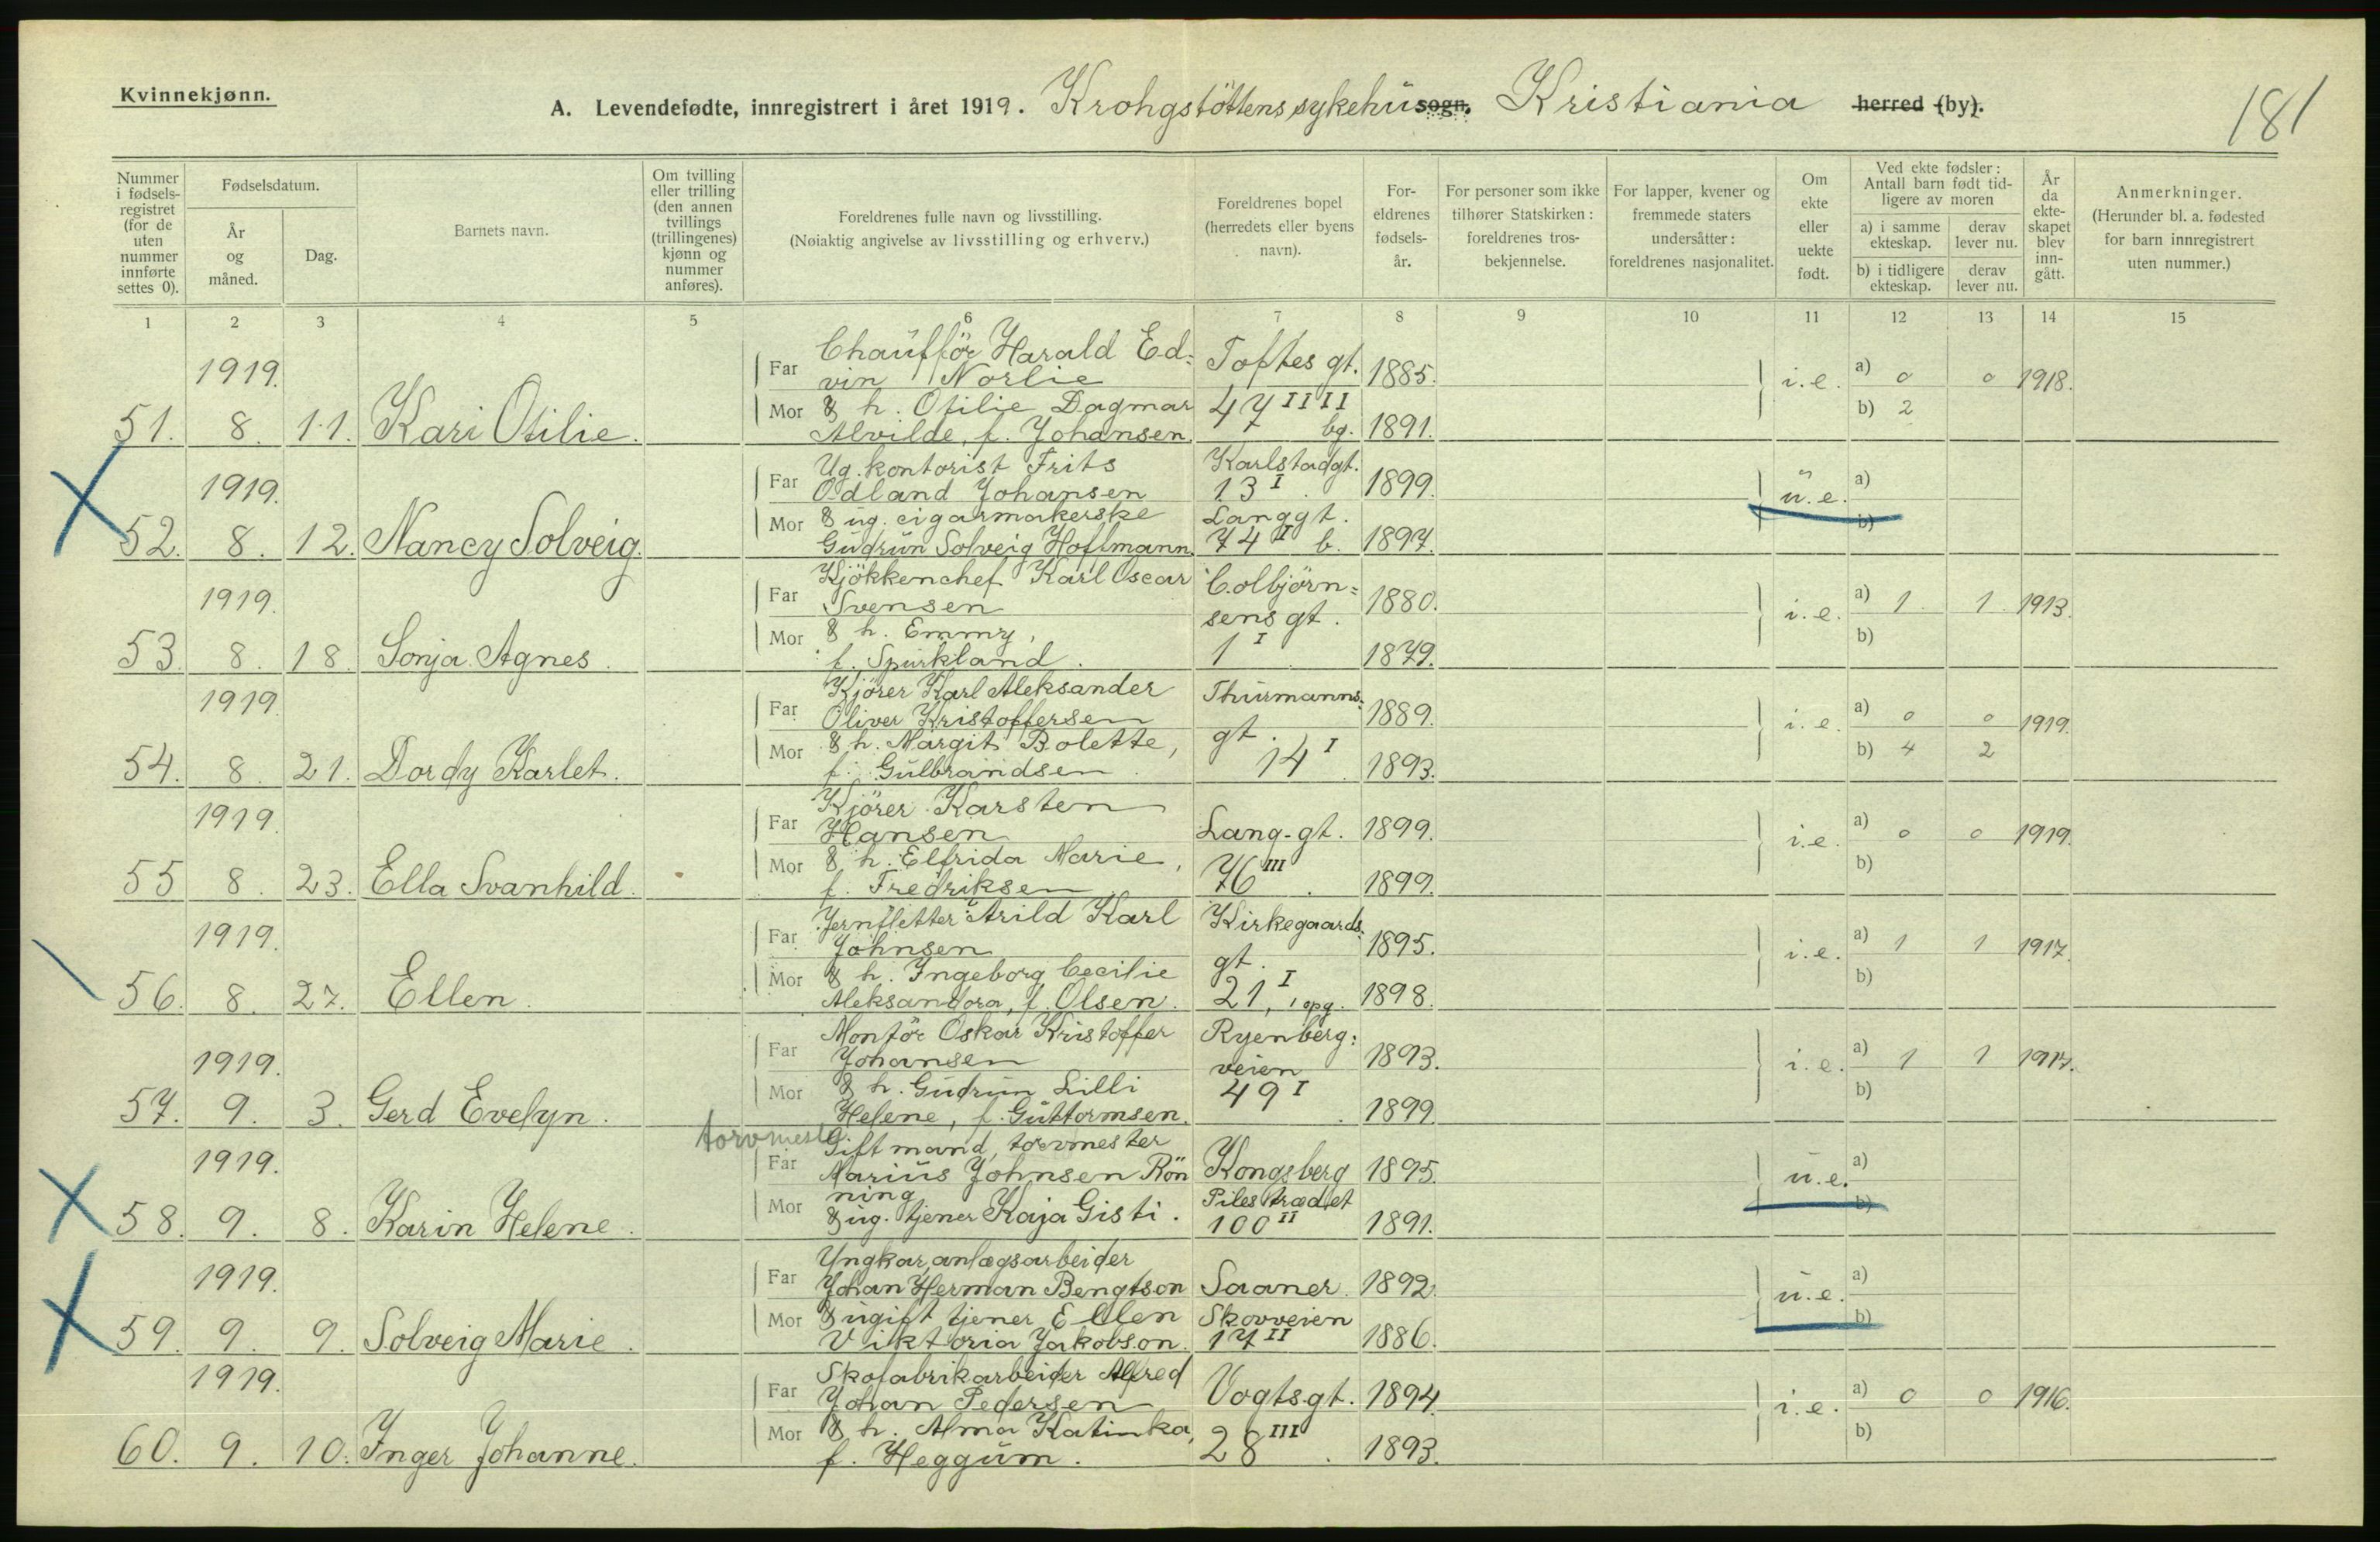 Kvinnekjønn.
A. Levendefødte, innregistrert i året 1919. Krohgstöttens sykehus sogn. Kristiania herred (by).
181
Nummer i fødsels-registret (for de uten nummer innførte settes 0).
Fødselsdatum.
År og måned.
Dag.
Barnets navn.
Om tvilling eller trilling (den annen tvillings (trillingenes) kjønn og nummer anføres).
Foreldrenes fulle navn og livsstilling.
(Nøiaktig angivelse av livsstilling og erhverv.)
Foreldrenes bopel (herredets eller byens navn).
For-eldrenes fødsels-år.
For personer som ikke tilhører Statskirken: foreldrenes tros-bekjennelse.
For lapper, kvener og fremmede staters undersåtter: foreldrenes nasjonalitet.
Om ekte eller uekte født.
Ved ekte fødsler: Antall barn født tid-ligere av moren
a) i samme ekteskap.
derav lever nu.
b) i tidligere ekteskap.
derav lever nu.
År da ekte-skapet blev inn-gått.
Anmerkninger.
(Herunder bl. a. fødested for barn innregistrert uten nummer.)
1 2 3 4 5 6 7 8 9 10 11 12 13 14 15
1919.
Far Chaufför Harald Ed= Toftes gt. 1885. i.e. a) 0 0 1918.
vin Norlie
Mor & h. Otilie Dagmar 47 IIII b) 2
51. 8. 11. Kari Otilie. Alvilde, f. Johansen. bg. 1891.
1919.
Far Ug. kontorist Frits Karlstadgt.
Odland Johansen 13 I. 1899. u.e. a)
Mor & ug. cigarmakerske Langgt. b)
52. 8. 12. Nancy Solveig. Gudrun Solveig Hoffmann. 74 I b. 1897.
1919.
Far Kjökkenchef Karl Oscar Colbjörn=
Svensen sens gt. 1880. i.e. a) 1 1 1913.
Mor & h. Emmy, b)
53. 8. 18. Sonja Agnes. f. Spurkland. 1 I 1879.
1919
Far Kjörer Karl Aleksander Thurmanns=
Oliver Kristoffersen 1889. i.e. a) 0 0 1919.
Mor & h. Margit Bolette, gt. b) 4 2
54. 8. 21. Dordy Karlet. f. Gulbrandsen. 14 I. 1893.
1919.
Far Kjörer Karsten
Hansen Lang-gt. 1899. i.e. a) 0 0 1919.
Mor & h. Elfrida Marie, b)
55 8. 23. Ella Svanhild. f. Fredriksen. 76 III. 1899.
1919.
Far Jernfletter Arild Karl Kirkegaards=
Johnsen 1895. i.e. a) 1 1 1917.
Mor & h. Ingeborg Cecilie gt. b)
56. 8. 27. Ellen. Aleksandora, f. Olsen. 21 I, 1 opg. 1898.
1919.
Far Montör Oskar Kristoffer Ryenberg=
Johansen veien 1893. i.e. a) 1 1 1917.
Mor & h. Gudrun Lilli 49 I b)
57. 9. 3. Gerd Evelyn. Helene, f. Guttormsen. 1899.
torvmester
1919.
Far Gift mand, torvmester
Marius Johnsen Rön Kongsberg 1895. u.e. a)
ning Pilestrædet b)
58. 9. 8. Karin Helene. Mor & ug. tjener Kaja Gisti. 100 II 1891.
1919.
Far Yngkar, anlægsarbeider
Johan Herman Bengtson Saaner. 1892. u.e. a)
Mor & ugift tjener Ellen Skovveien b)
59. 9. 9. Solveig Marie. Viktoria Jakobson. 17 II 1886.
1919.
Far Skofabrikarbeider Alfred
Johan Pedersen Vogtsgt. 1894. i.e. a) 0 0 1916.
Mor & h. Alma Katinka, b)
60. 9. 10. Inger Johanne. f. Heggum. 28 III. 1893.